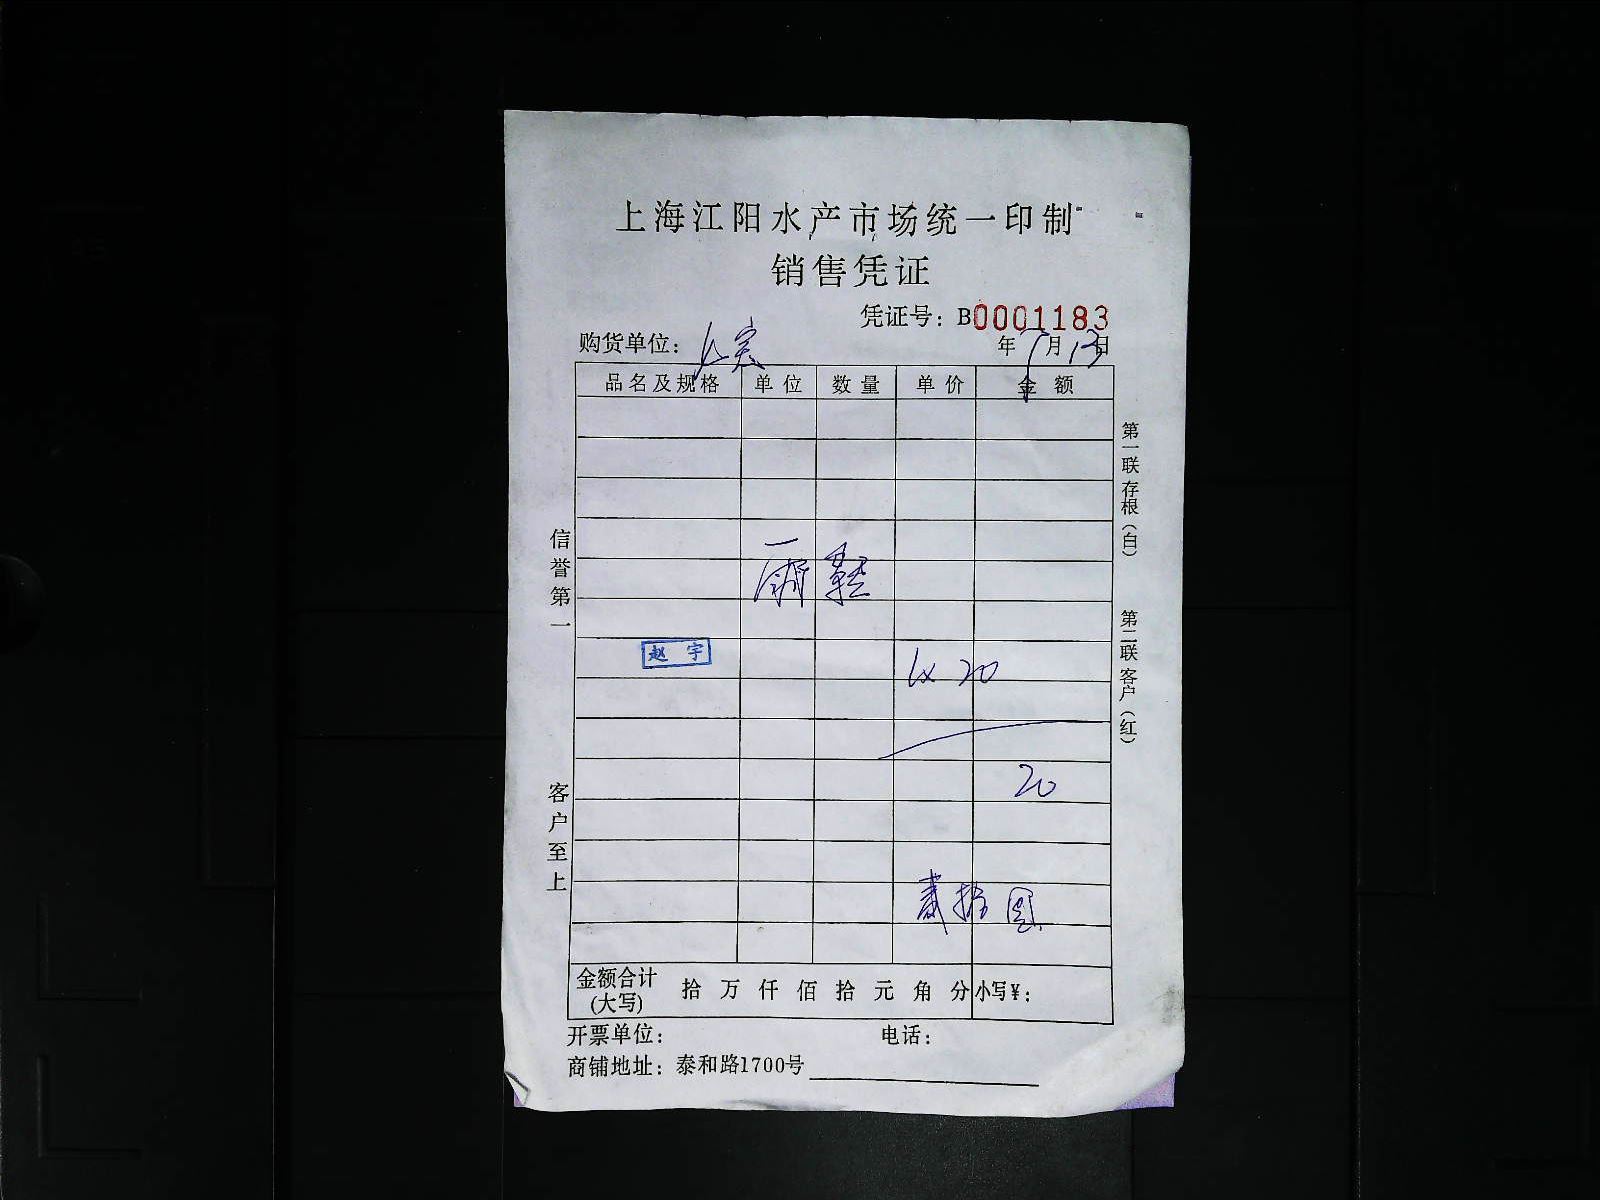 上海江阳水产市场统一印制
销售凭证
凭证号：B0001183
购货单位： 年 月13日
品名及规格 单位 数量 单价 金额
赵宇
1x20
20
贰拾圆
金额合计（大写） 拾 万 仟 佰 拾 元 角 分 小写¥：
开票单位： 电话：
商铺地址：泰和路1700号
信誉第一 客户至上
第一联存根（白） 第二联客户（红）